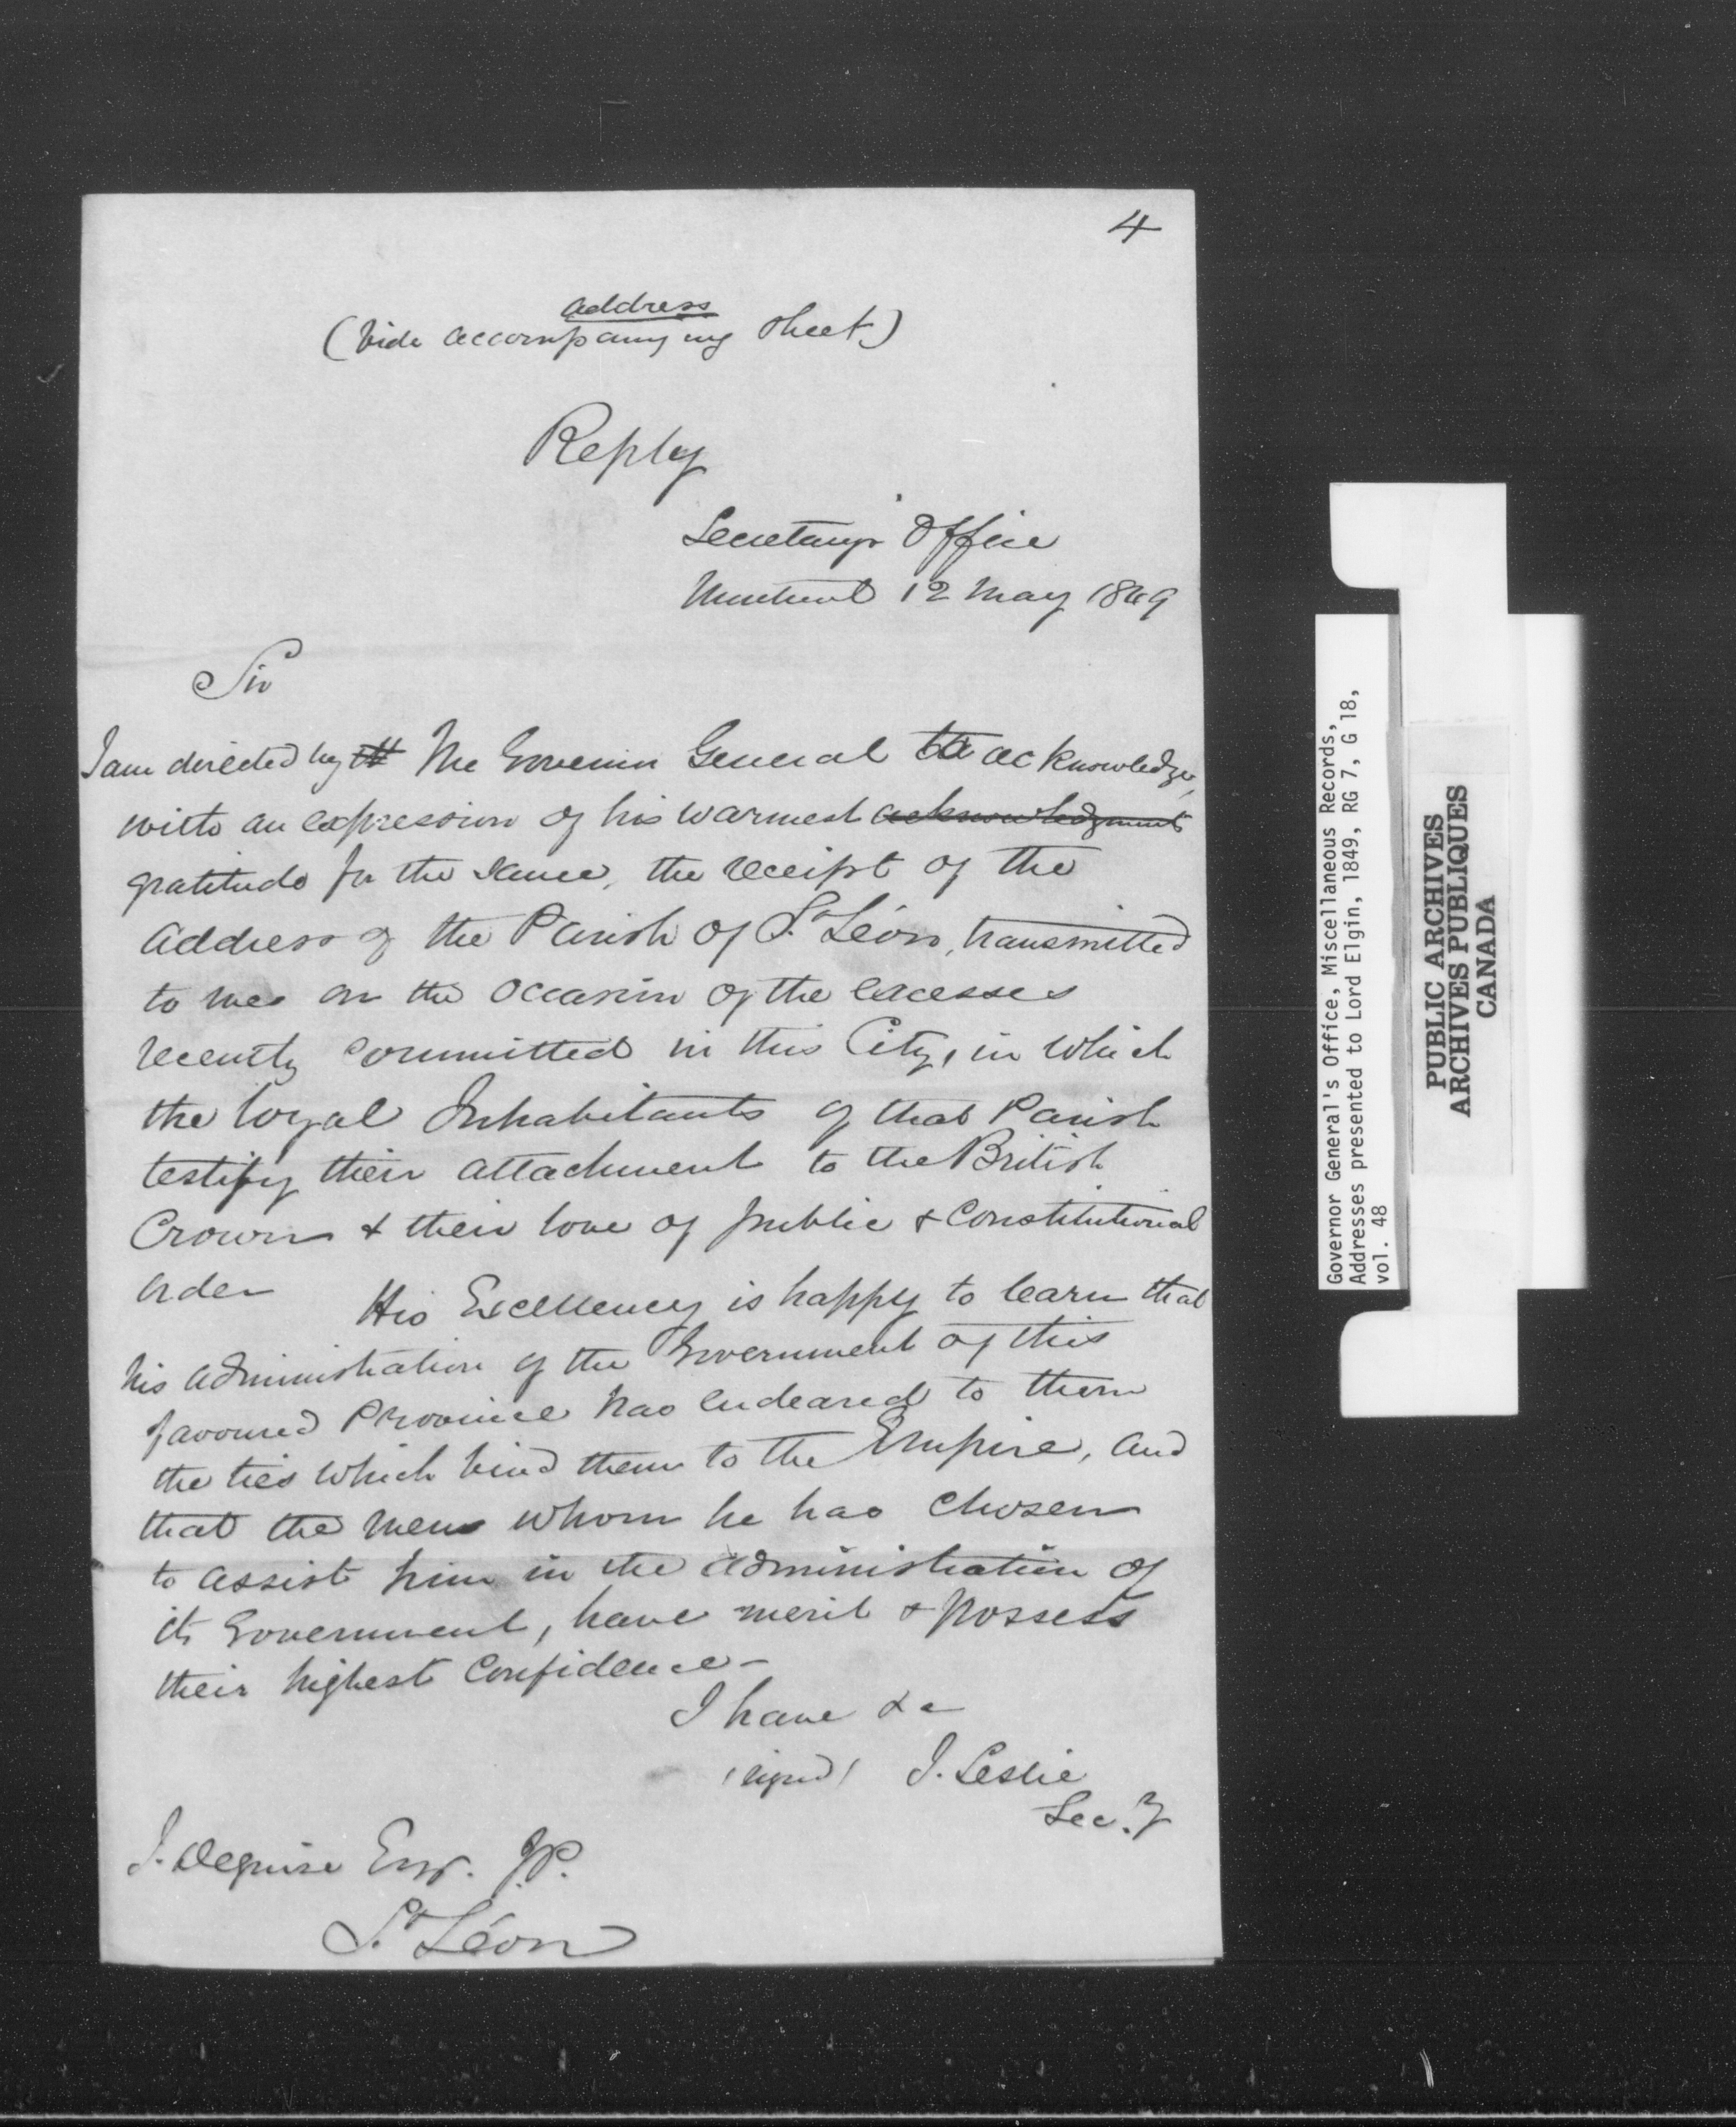 4
address
(Vide accompanying sheet)
Reply
Secretary's Office
Montreal 12 May 1849
Sir
I am directed by The Governor General to acknowledge,
with an expression of his warmest acknowledgments
gratitude for the same, the receipt of the
address of the Parish of St Léon, transmitted
to me on the occasion of the excesses
recently committed in this City, in which
the loyal Inhabitants of that Parish
testify their attachment to the British
Crown & their love of public & constitutional
order
His Excellency is happy to learn that
his administration of the Government of this
favoured Province has endeared to them
the ties which bind them to the Empire, and
that the men whom he has chosen
to assist him in the administration of
its Government, have merit & possess
their highest confidence-
I have &c
(signed) J. Leslie
Secy
J. Deguise Esqr. J.P.
St Léon
Governor General's Office, Miscellaneous Records,
Addresses presented to Lord Elgin, 1849, RG 7, G 18,
vol. 48
PUBLIC ARCHIVES
ARCHIVES PUBLIQUES
CANADA